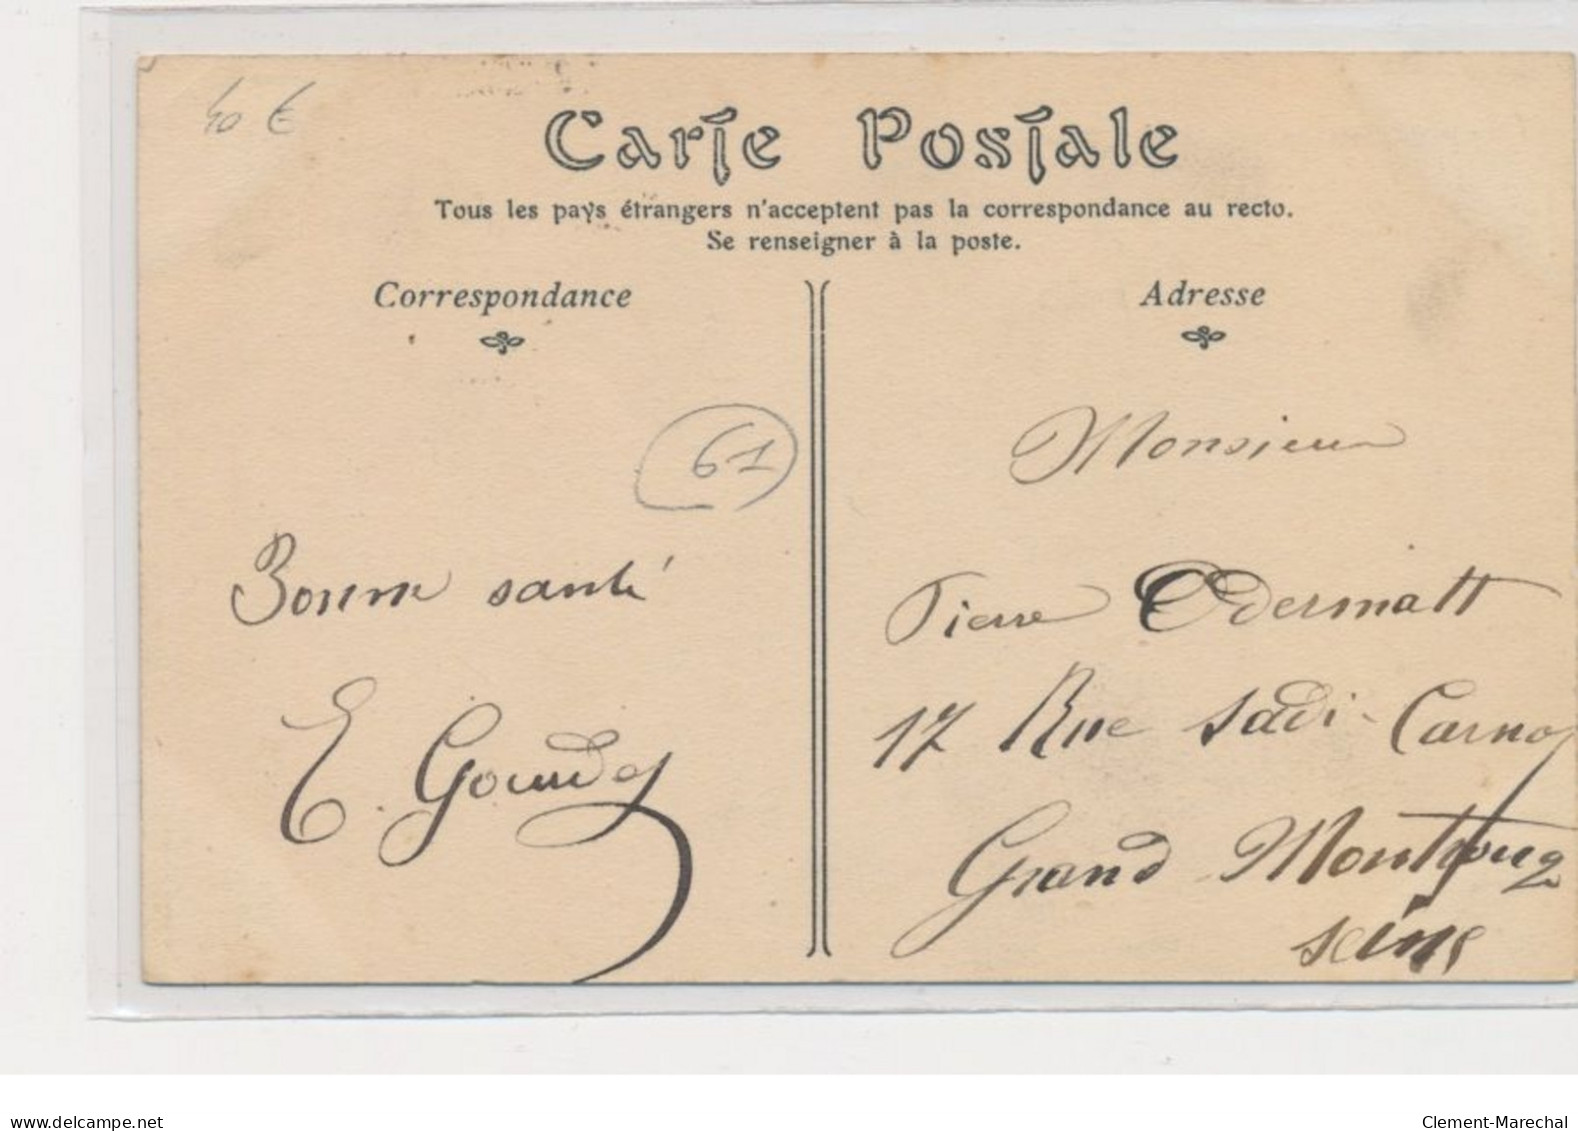 40 €
Carte Postale
Tous les pays étrangers n'acceptent pas la correspondance au recto.
Se renseigner à la poste.
Correspondance
Adresse
61
Bonne santé
E. Gourdel
Monsieur
Pierre Odermatt
17 Rue Sadi-Carnot
Grand Montrouge
Seine
delcampe.net
Clement-Marechal